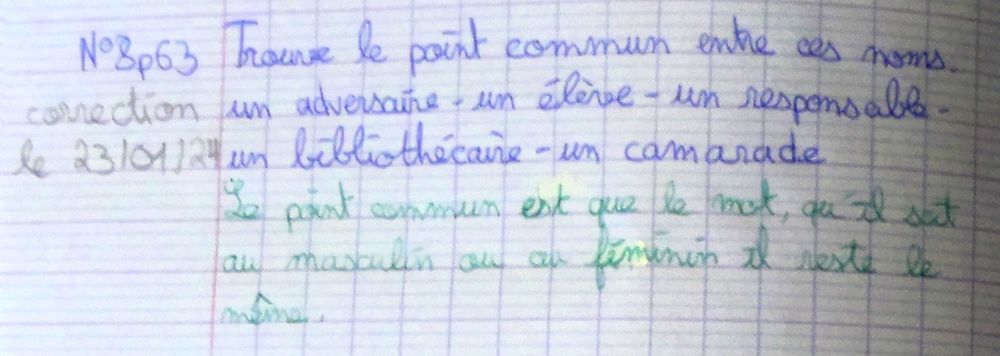 N°8p63 Trouve le point commun entre ces noms.
correction un adversaire - un élève - un responsable -
le 23/01/24 un bibliothécaire - un camarade
Le point commun est que le mot, qu'il soit
au masculin ou au féminin il reste le
même.